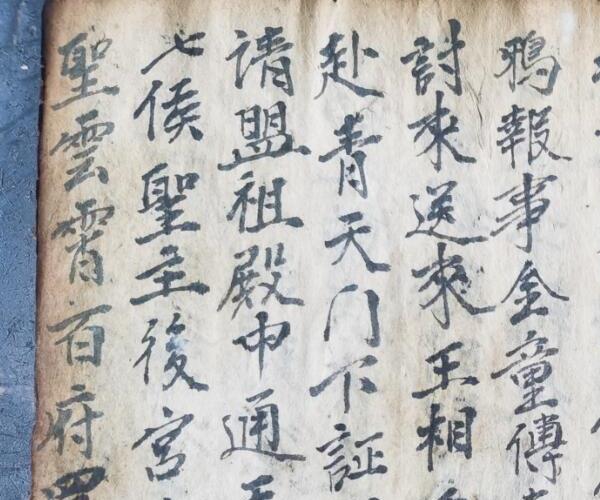 鴉報事金童傳
討來送來王相
赴青天门下証
请盟祖殿中通
七侯聖主後宮
聖雲霄百府